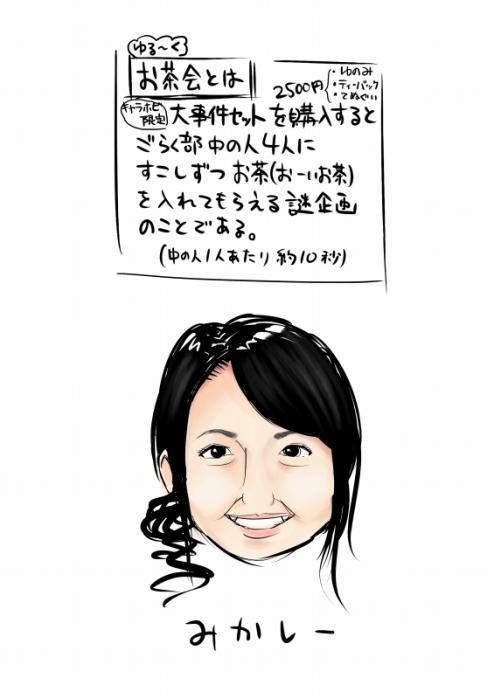 ゆる〜く
お茶会とは
2500円
・ゆのみ
・ティーパック
・てぬぐい
キャラホビ限定
大事件セットを購入すると
ごらく部中の人4人に
すこしずつお茶(おーいお茶)
を入れてもらえる謎企画
のことである。
(中の人1人あたり約10秒)
みかしー